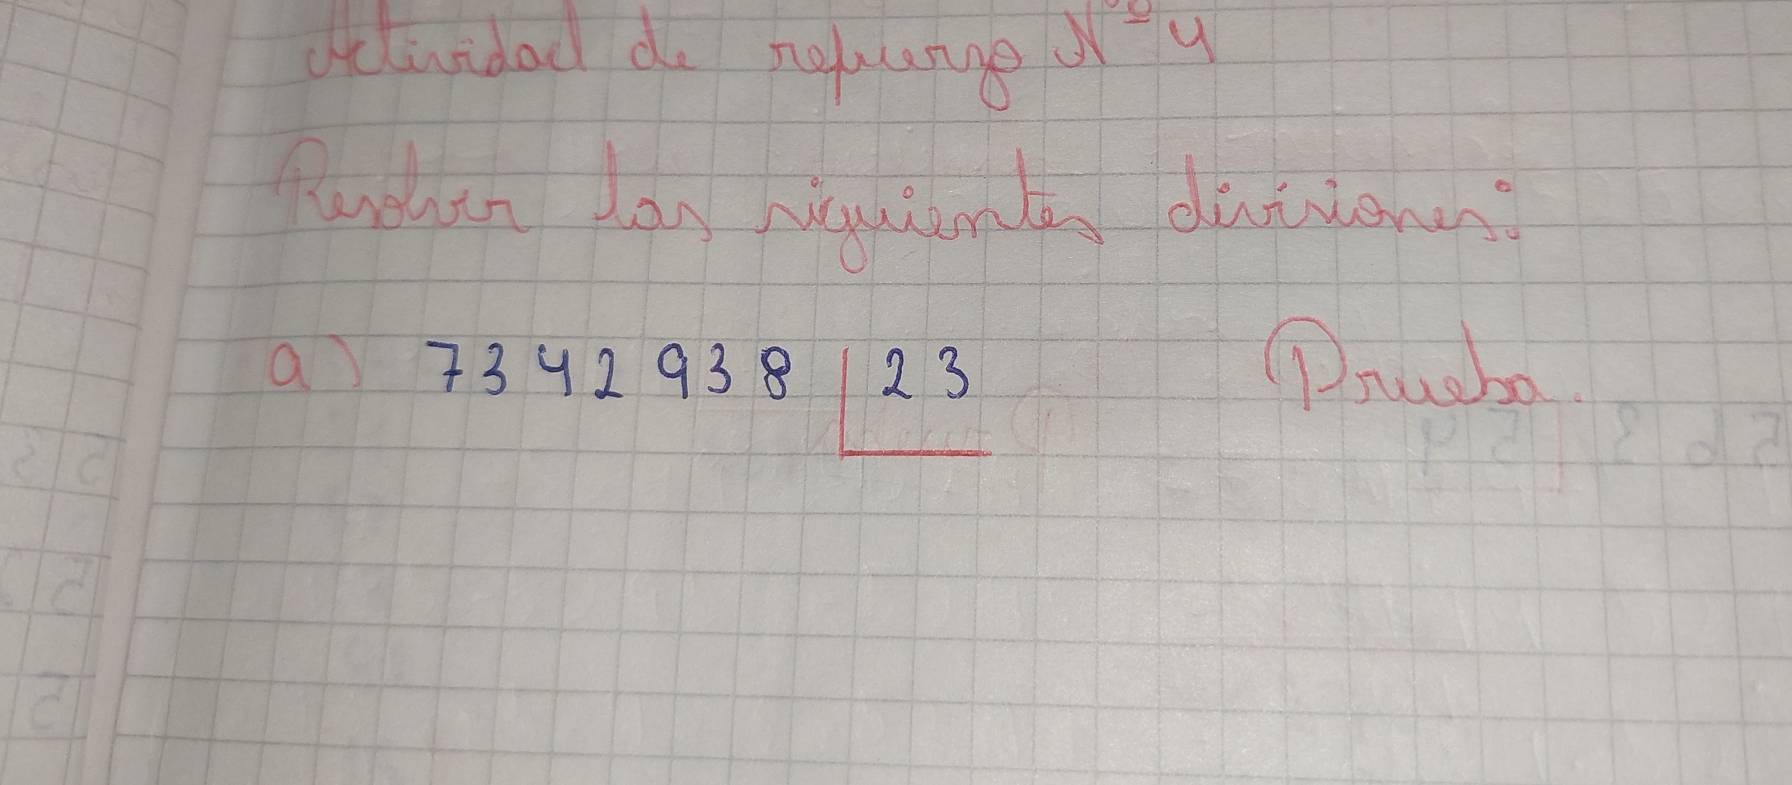 Actividad de refuerzo Nº 4
Resolver las siguientes divisiones:
a) 7342938 23 Prueba.